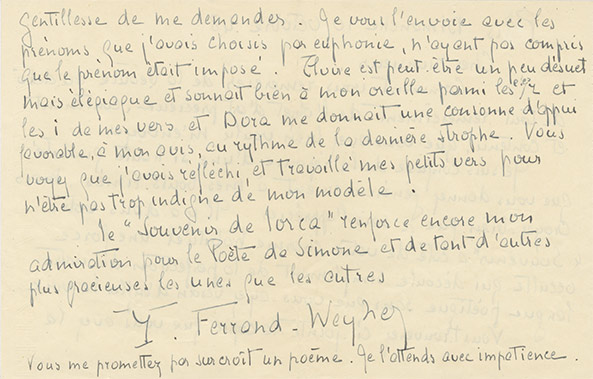 gentillesse de me demander. Je vous l'envoie avec les
prénoms que j'avais choisis par euphonie, n'ayant pas compris
que le prénom était imposé. Elvire est peut-être un peu désuet
mais élégiaque et sonnait bien à mon oreille parmi les r et
les i de mes vers et Dora me donnait une consonne d'appui
favorable, à mon avis, au rythme de la dernière strophe. Vous
voyez que j'avais réfléchi et travaillé mes petits vers pour
n'être pas trop indigne de mon modèle.
Le "Souvenir de Lorca" renforce encore mon
admiration pour le Poète de Simone et de tant d'autres
plus gracieuses les unes que les autres
Y. Ferrand-Weyher
Vous me promettez par surcroît un poème. Je l'attends avec impatience.